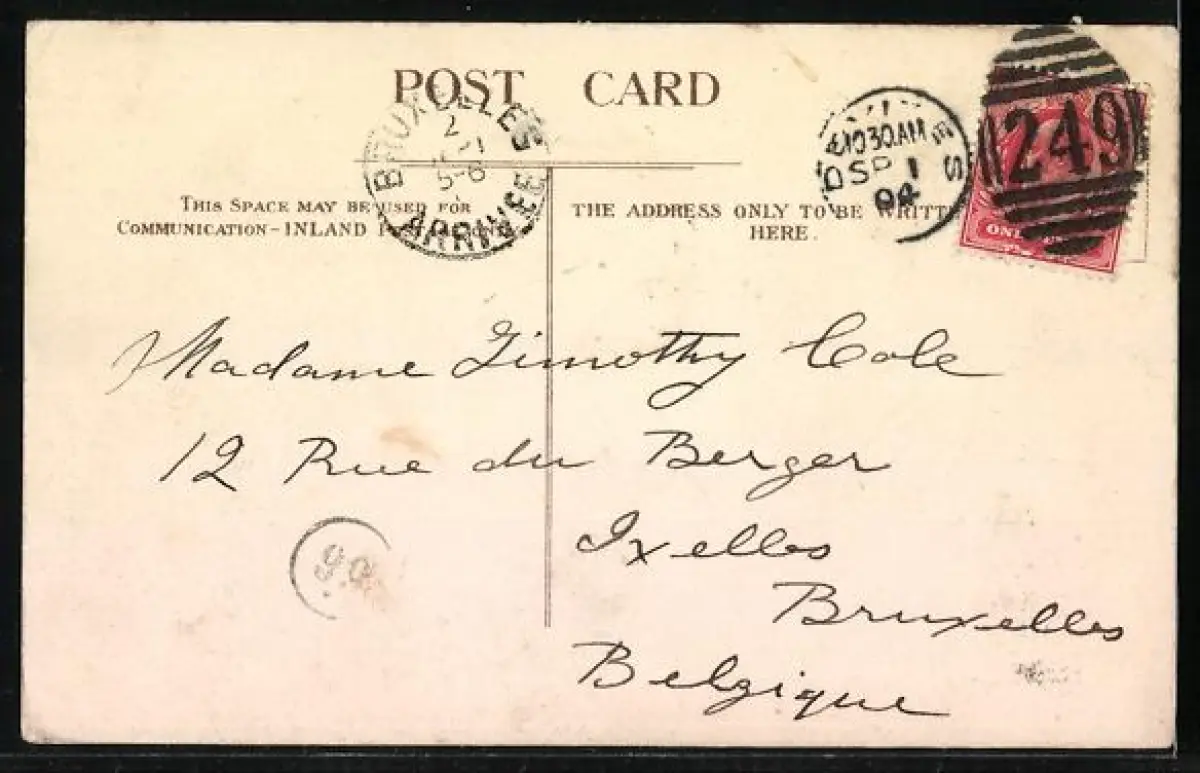 POST CARD
BRUXELLES
ARRIVÉE
10 30 AM
SP 1
04
249
ONE
THIS SPACE MAY BE USED FOR
COMMUNICATION–INLAND
THE ADDRESS ONLY TO BE WRITT
HERE.
Madame Timothy Cole
12 Rue du Berger
Ixelles
Bruxelles
Belgique